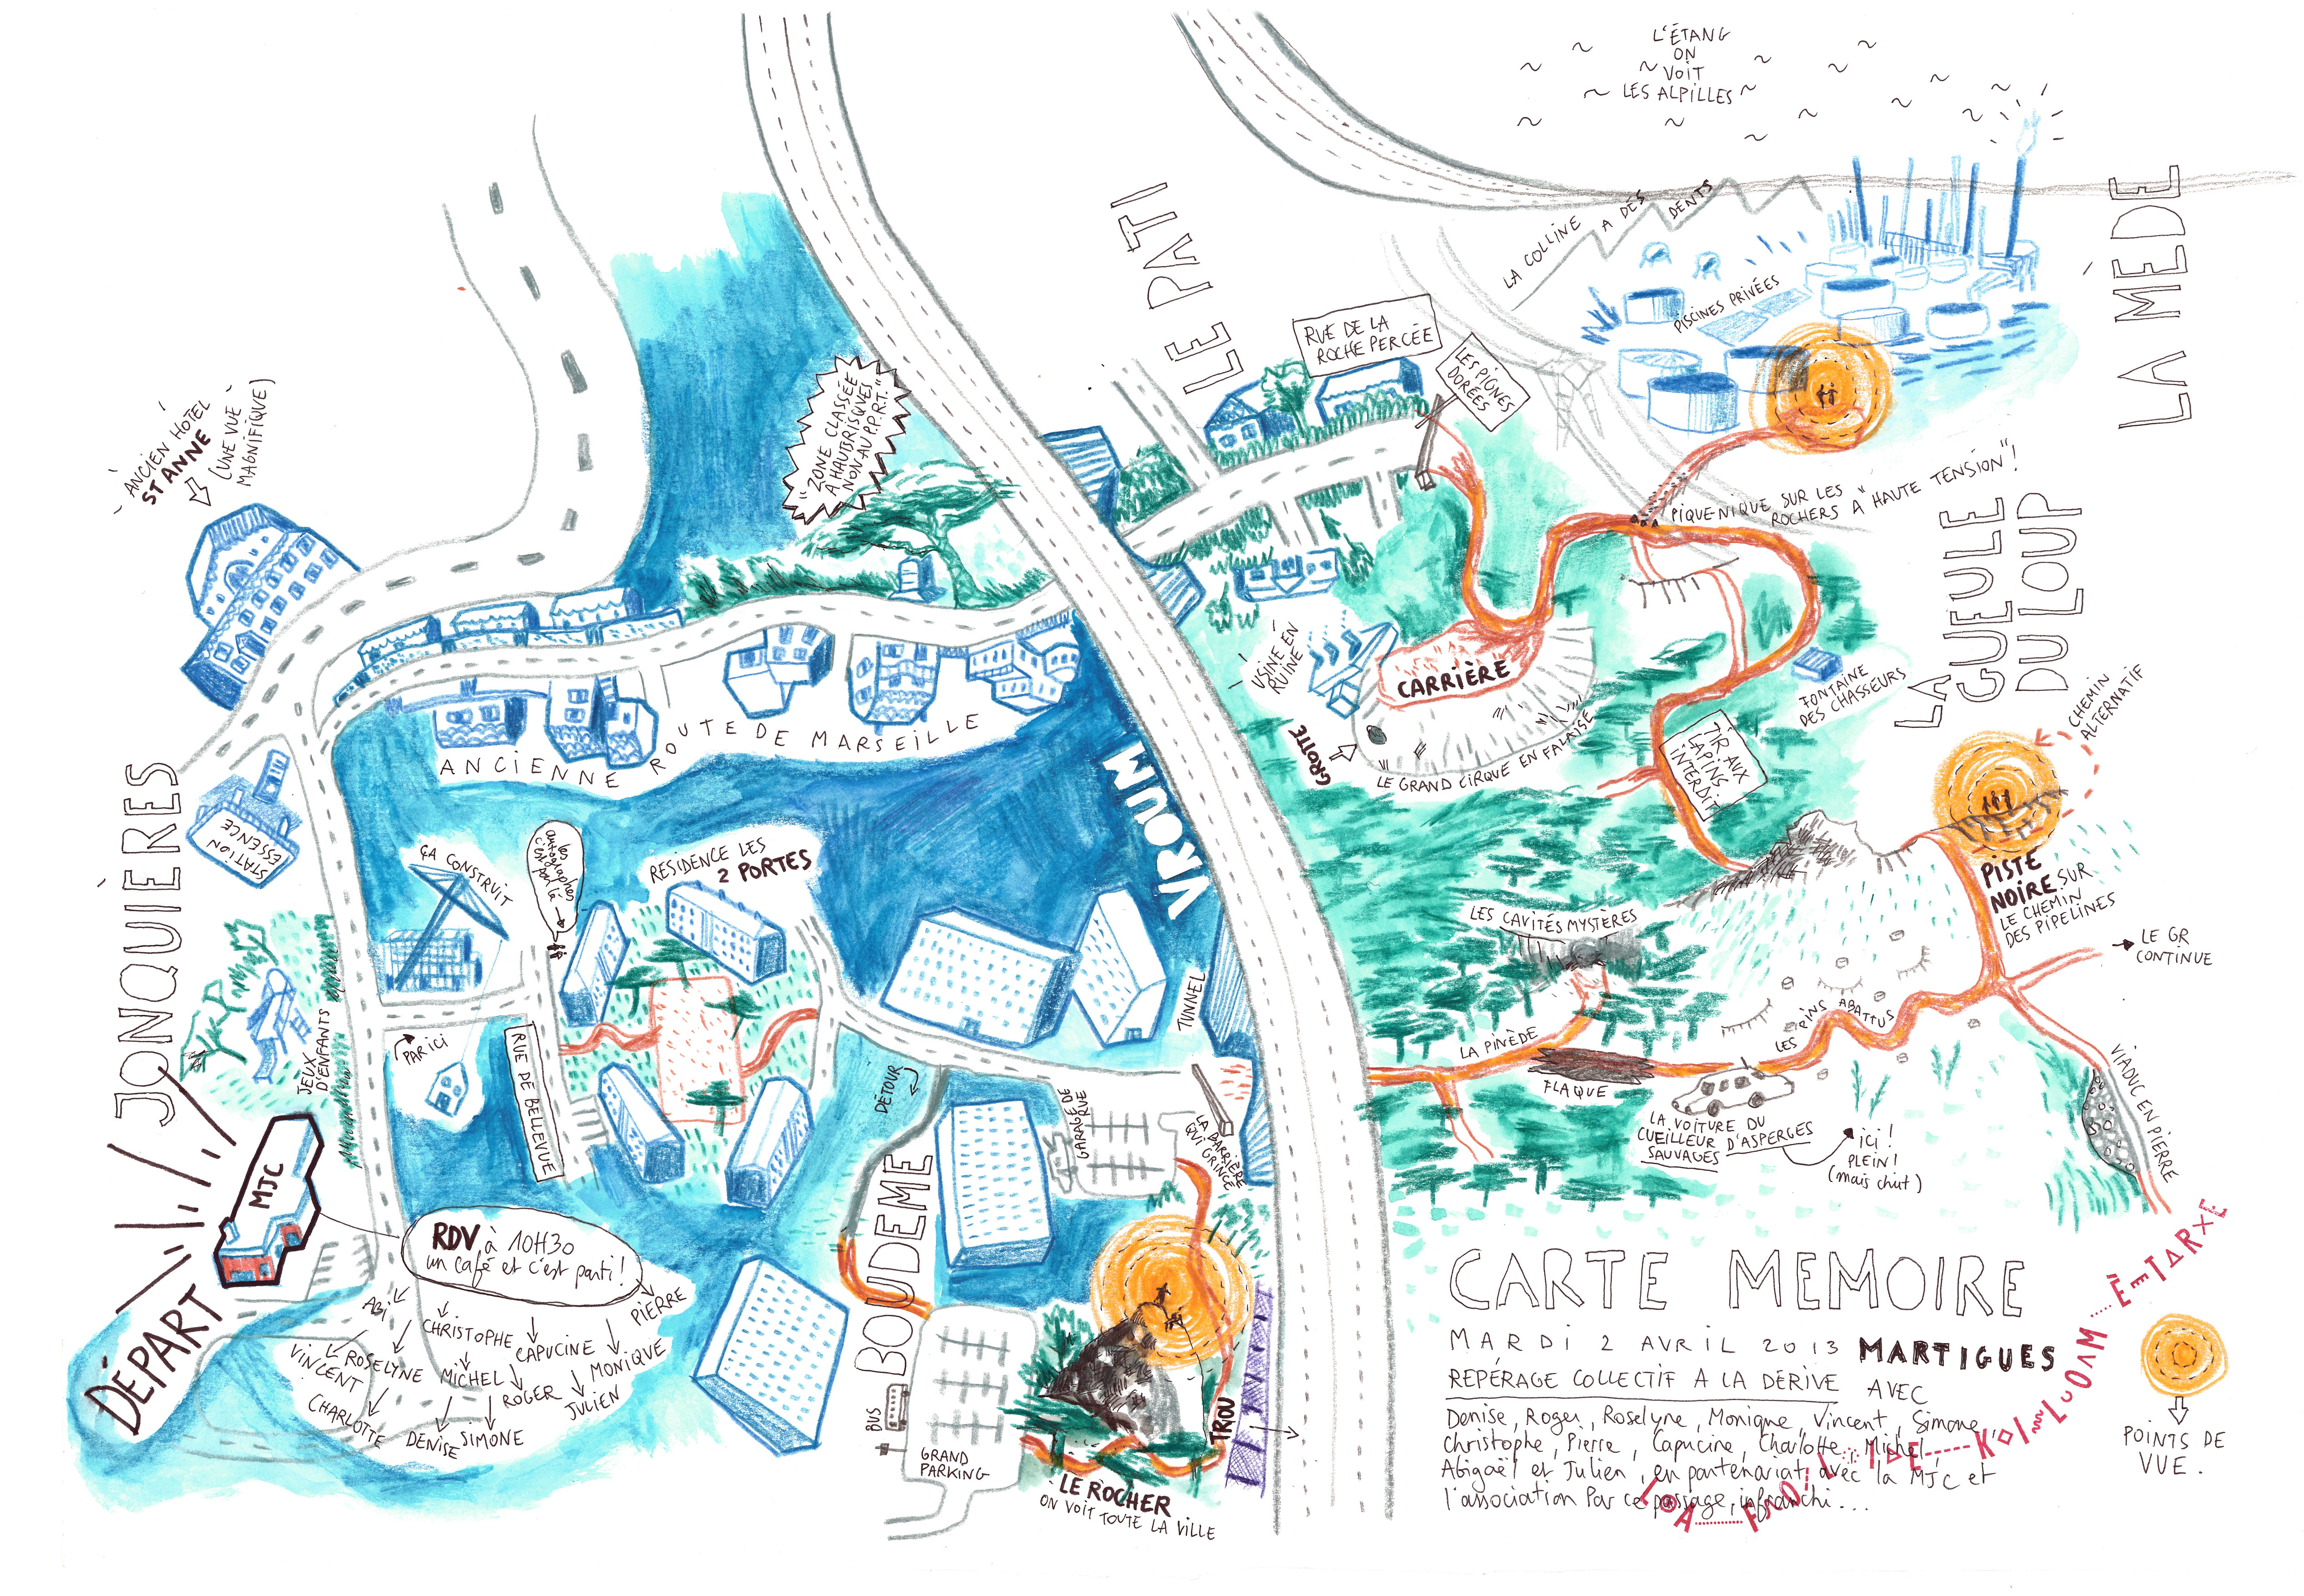 L'ÉTANG
ON
VOIT
LES ALPILLES
LA COLLINE A DÉS DENTS
PISCINES PRIVÉES
LA MÈDE
LE PATI
RUE DE LA
ROCHE PERCÉE
LES PIGNES
DORÉES
"ZONE CLASSÉE
A HAUTS RISQUES"
NON AU P.P.R.T."
ANCIEN HOTEL
ST ANNE
(UNE VUE
MAGNIFIQUE)
PIQUE-NIQUE SUR LES
ROCHERS A "HAUTE TENSION"!
LA
GUEULE
DU LOUP
USINE EN
RUINE
CARRIÈRE
GROTTE
LE GRAND CIRQUE EN FALAISE
FONTAINE
DES CHASSEURS
CHEMIN
ALTERNATIF
TIR AUX
LAPINS
INTERDIT
ANCIENNE ROUTE DE MARSEILLE
VROUM
JONQUIÈRES
STATION
ESSENCE
ÇA CONSTRUIT
les
autographes
c'est
par là
RESIDENCE LES
2 PORTES
PISTE
NOIRE SUR
LE CHEMIN
DES PIPELINES
LES CAVITÉS MYSTÈRES
LE GR
CONTINUE
JEUX
D'ENFANTS
PAR ICI
RUE DE BELLEVUE
TUNNEL
DÉTOUR
GARAGE DE
RUE
LA BARRIÈRE
QUI GRINCE
LA PINÈDE
FLAQUE
LES PINS ABATTUS
LA VOITURE DU
CUEILLEUR D'ASPERGES
SAUVAGES
ici!
PLEIN!
(mais chut)
VIADUC EN PIERRE
MJC
DÉPART
RDV à 10H30
un café et c'est parti!
ABI
CHRISTOPHE
CAPUCINE
PIERRE
VINCENT
ROSELYNE
MICHEL
ROGER
MONIQUE
JULIEN
CHARLOTTE
DENISE
SIMONE
BOUDEME
BUS
GRAND
PARKING
TROU
LE ROCHER
ON VOIT TOUTE LA VILLE
CARTE MEMOIRE
MARDI 2 AVRIL 2013 MARTIGUES
REPÉRAGE COLLECTIF A LA DÉRIVE AVEC
Denise, Roger, Roselyne, Monique, Vincent, Simone,
Christophe, Pierre, Capucine, Charlotte, Michel,
Abigaël et Julien, en partenariat avec la MJC et
l'association Par ce passage, infranchi...
POINTS DE
VUE.